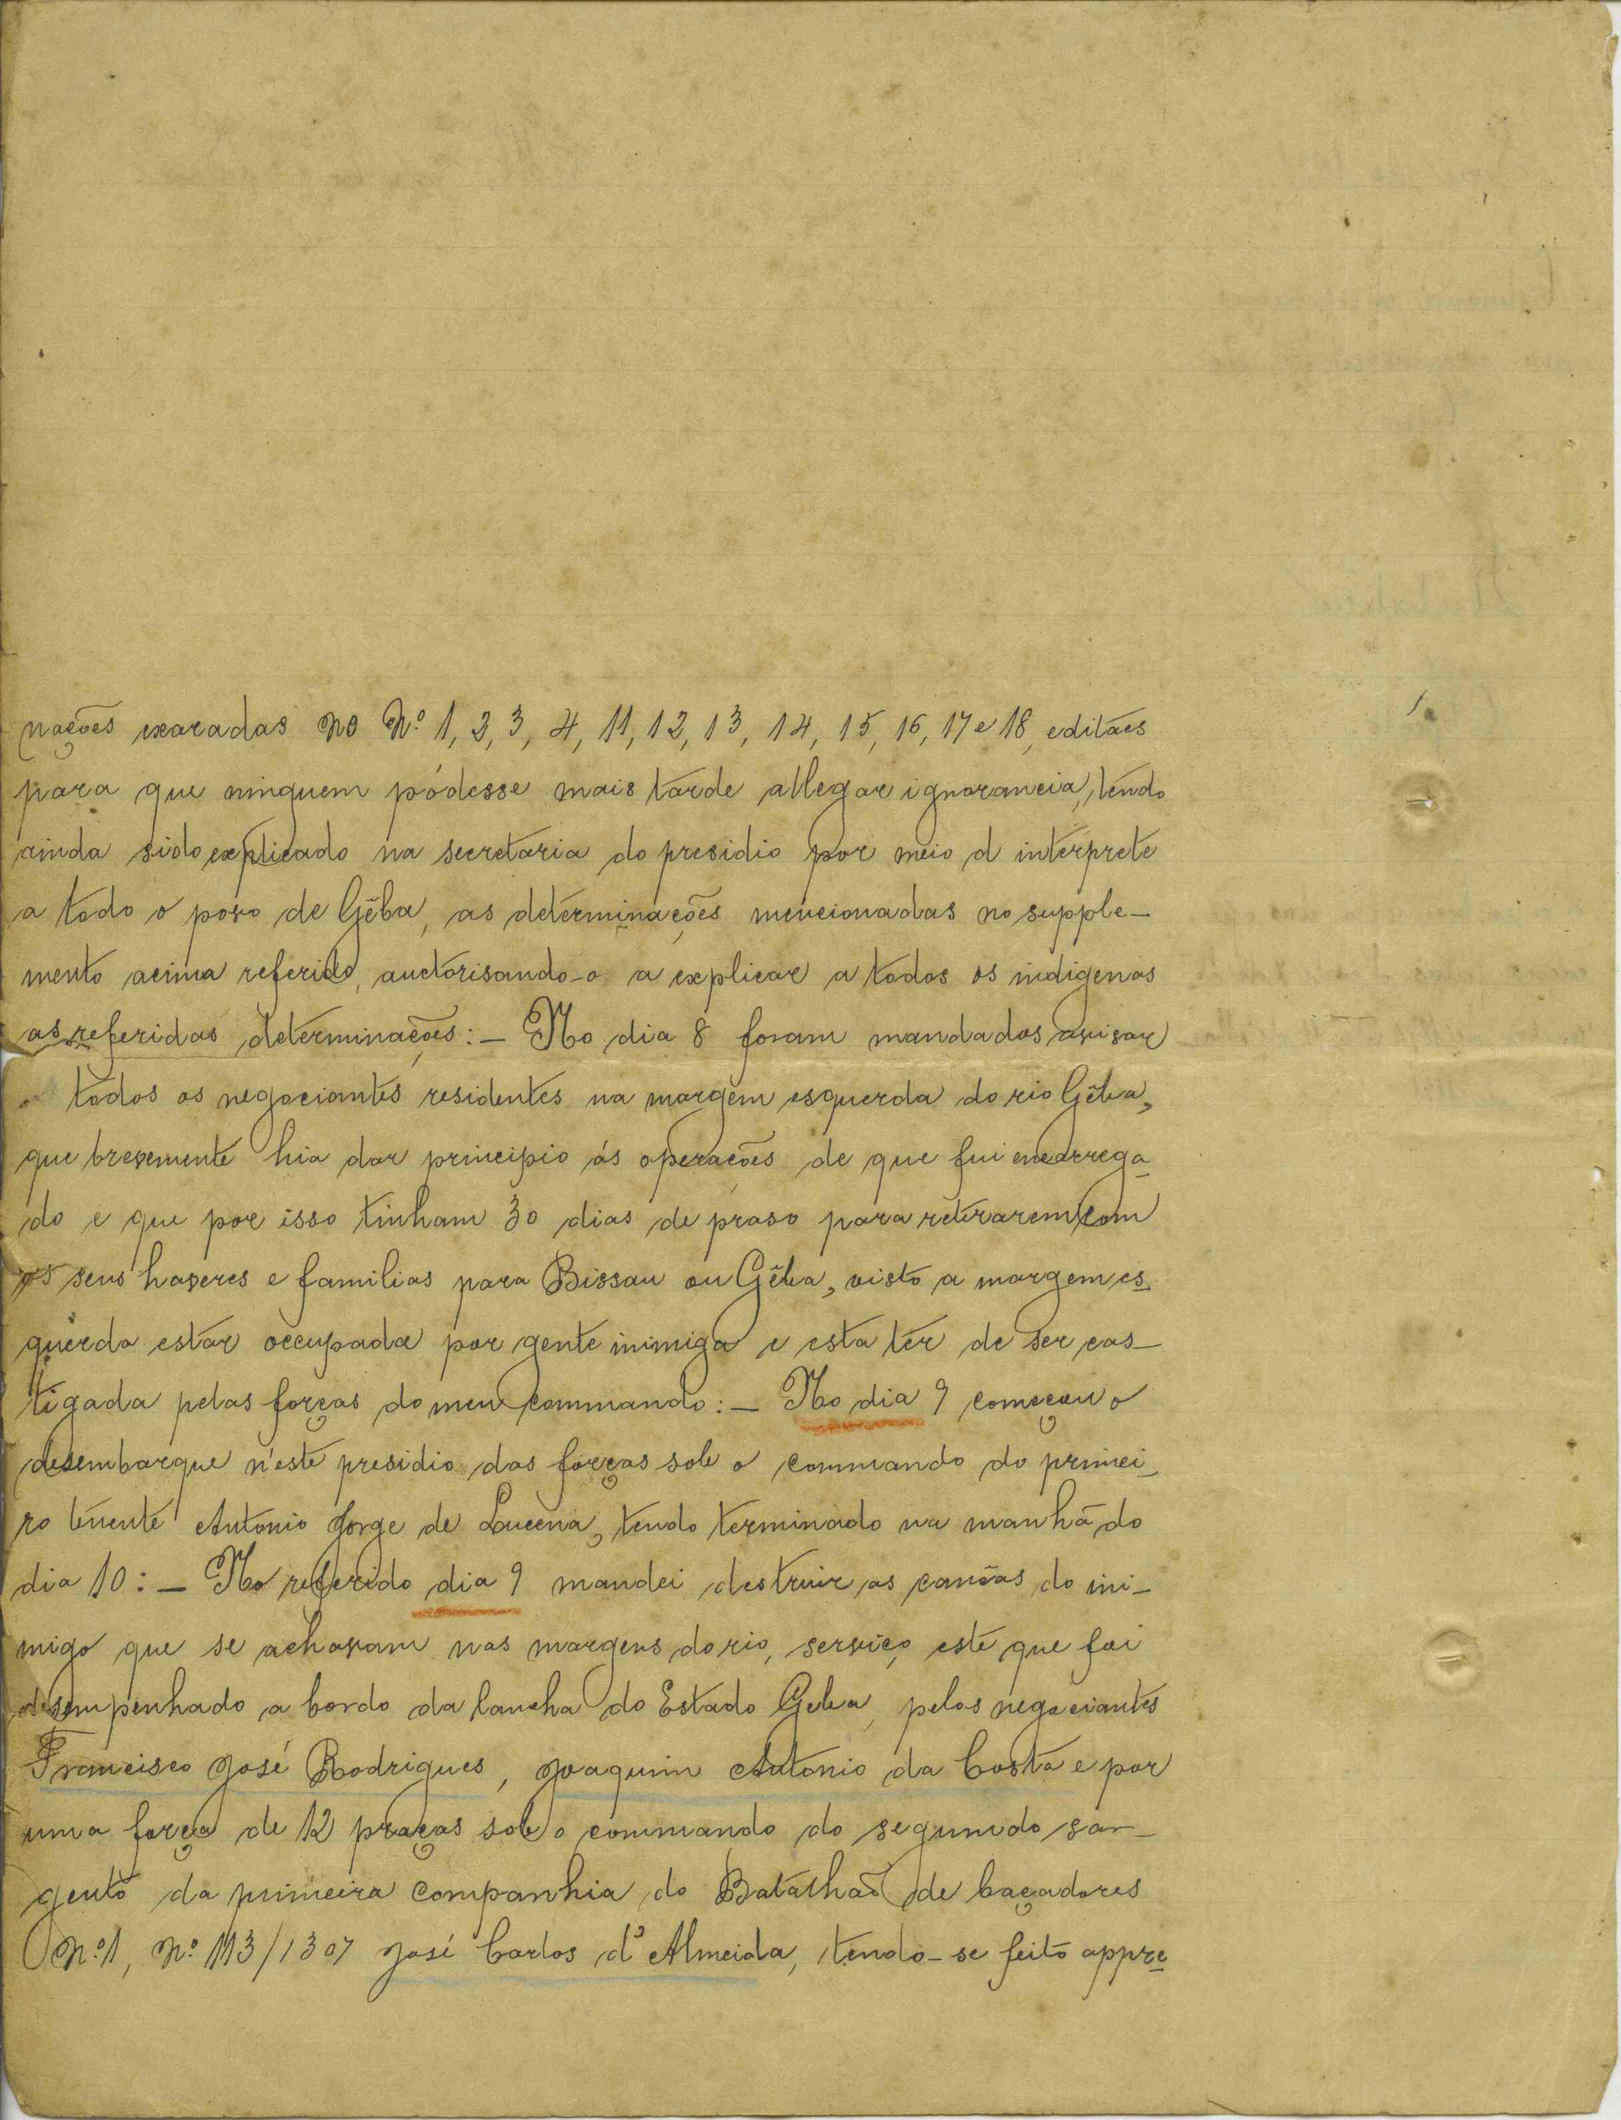 nações exaradas no Nº 1, 2, 3, 4, 11, 12, 13, 14, 15, 16, 17 e 18, editáes
para que ninguem pódesse mais tarde allegar ignorancia, tendo
ainda sido explicado na secretaria do presidio por meio d interprete
a todo o povo de Gêba, as determinações mencionadas no supple-
mento acima referido, auctorisando-o a explicar a todos os indigenas
as referidas determinações:- No dia 8 foram mandados avisar
todos os negociantes residentes na margem esquerda do rio Gêba,
que brevemente hia dar principio ás operações de que fui encarrega-
do e que por isso tinham 30 dias de praso para retirarem com
os seus haveres e familias para Bissau ou Gêba, visto a margem es-
querda estar occupada por gente inimiga e esta ter de ser cas-
tigada pelas forças do meu commando:- No dia 9 começou o
desembarque n'este presidio das forças sob o commando do primei-
ro tenente Antonio Jorge de Lucena, tendo terminado na manhã do
dia 10:- No referido dia 9 mandei destruir as canôas do ini-
migo que se achavam nas margens do rio, serviço este que foi
desempenhado a bordo da lancha do Estado Geba, pelos negociantes
Francisco José Rodrigues, Joaquim Antonio da Costa e por
uma força de 12 praças sob o commando do segundo sar-
gento da primeira companhia do Batalhão de Caçadores
Nº 1, nº 113/1307 José Carlos d'Almeida, tendo-se feito appre-